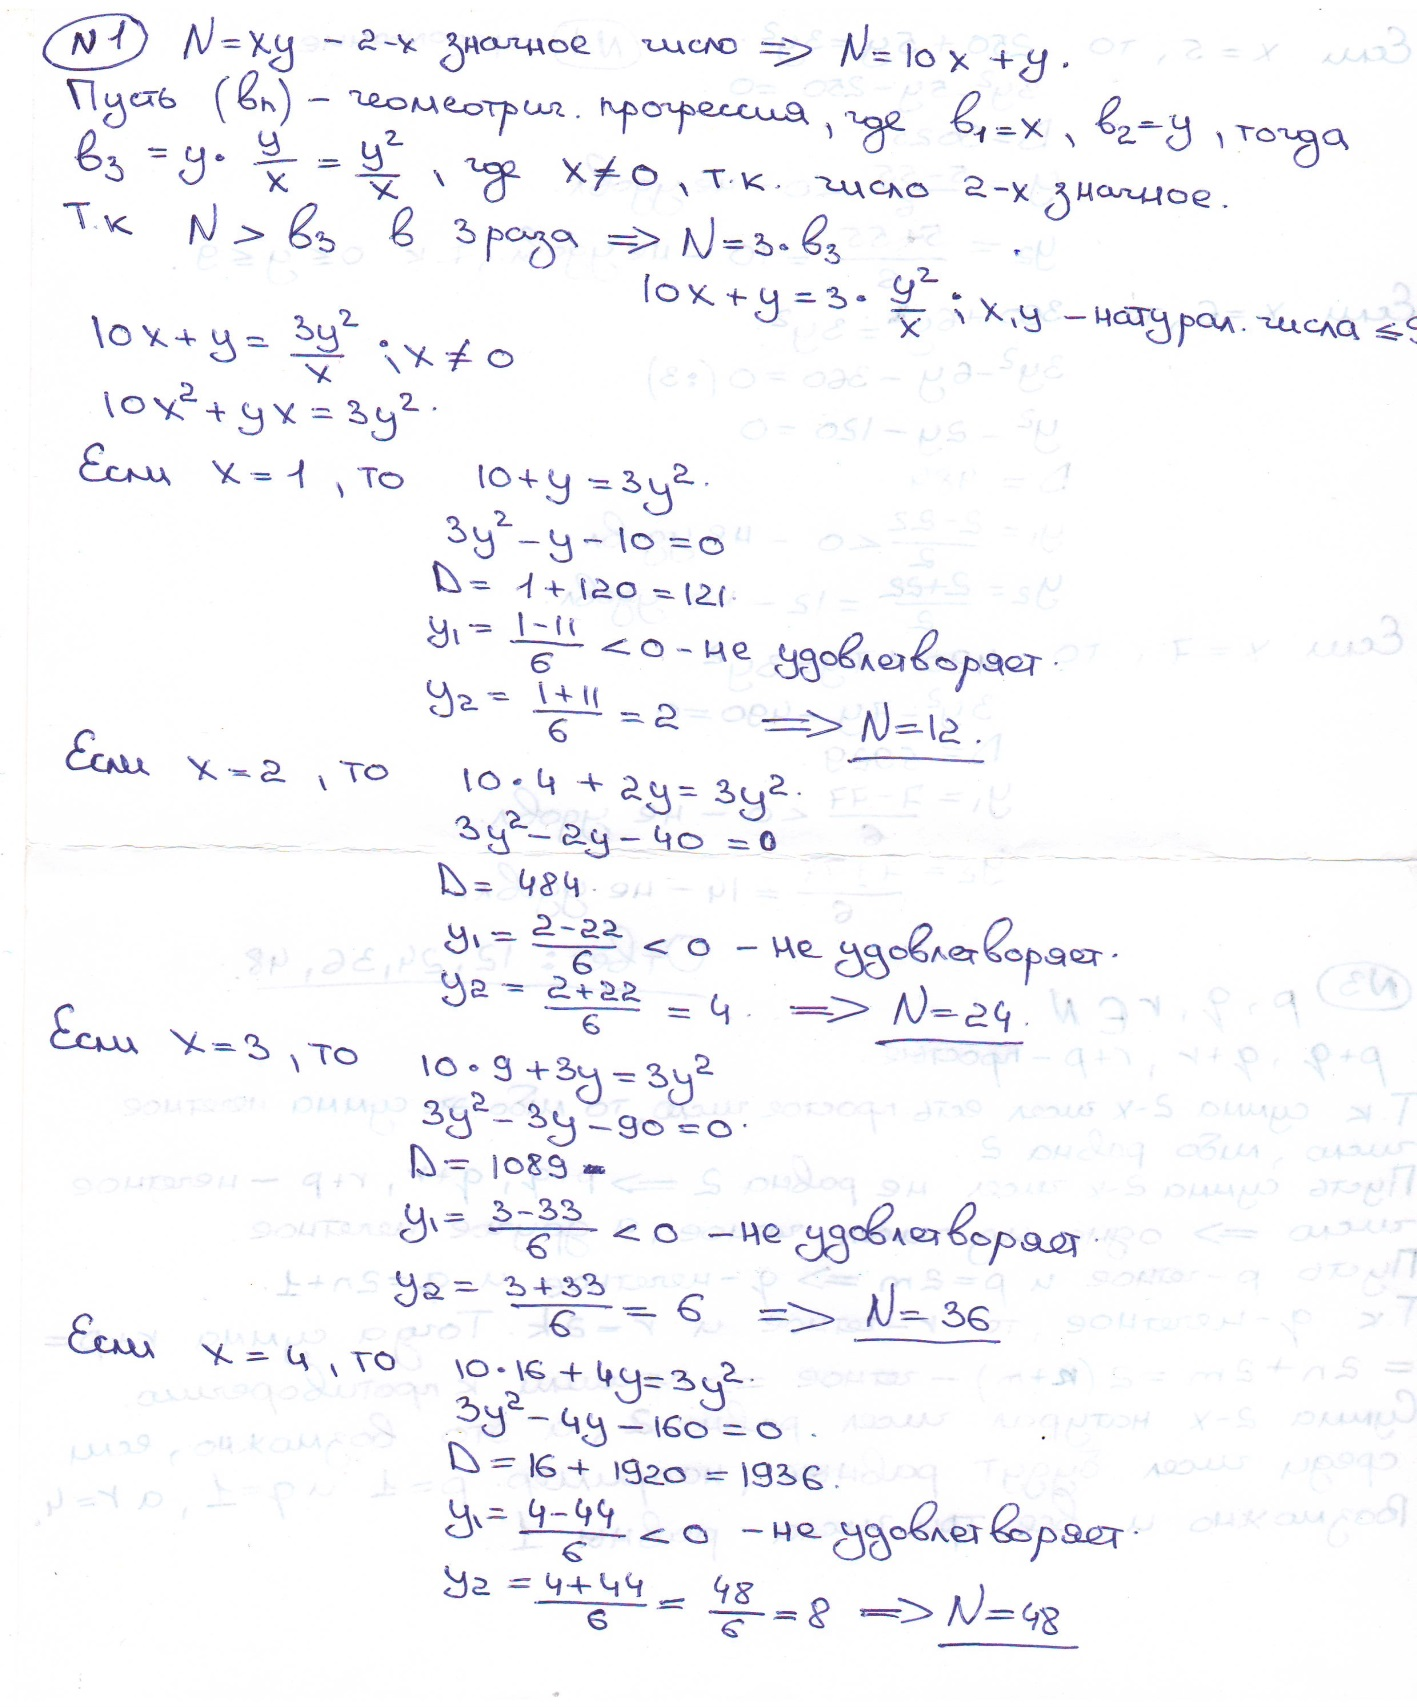 N1 N = xy – 2-х значное число => N = 10x + y.
Пусть (bn) – геометрич. прогрессия, где b1 = x, b2 = y, тогда
b3 = y · y/x = y²/x, где x ≠ 0, т.к. число 2-х значное.
Т.к N > b3 в 3 раза => N = 3 · b3
10x + y = 3 · y²/x ; x, y – натурал. числа ≤ 9
10x + y = 3y²/x ; x ≠ 0
10x² + yx = 3y².
Если x = 1, то 10 + y = 3y².
3y² – y – 10 = 0
D = 1 + 120 = 121.
y1 = (1 – 11)/6 < 0 – не удовлетворяет.
y2 = (1 + 11)/6 = 2 => N = 12.
Если x = 2, то 10 · 4 + 2y = 3y².
3y² – 2y – 40 = 0
D = 484.
y1 = (2 – 22)/6 < 0 – не удовлетворяет.
y2 = (2 + 22)/6 = 4. => N = 24.
Если x = 3, то 10 · 9 + 3y = 3y²
3y² – 3y – 90 = 0.
D = 1089
y1 = (3 – 33)/6 < 0 – не удовлетворяет.
y2 = (3 + 33)/6 = 6 => N = 36
Если x = 4, то 10 · 16 + 4y = 3y².
3y² – 4y – 160 = 0.
D = 16 + 1920 = 1936.
y1 = (4 – 44)/6 < 0 – не удовлетворяет.
y2 = (4 + 44)/6 = 48/6 = 8 => N = 48